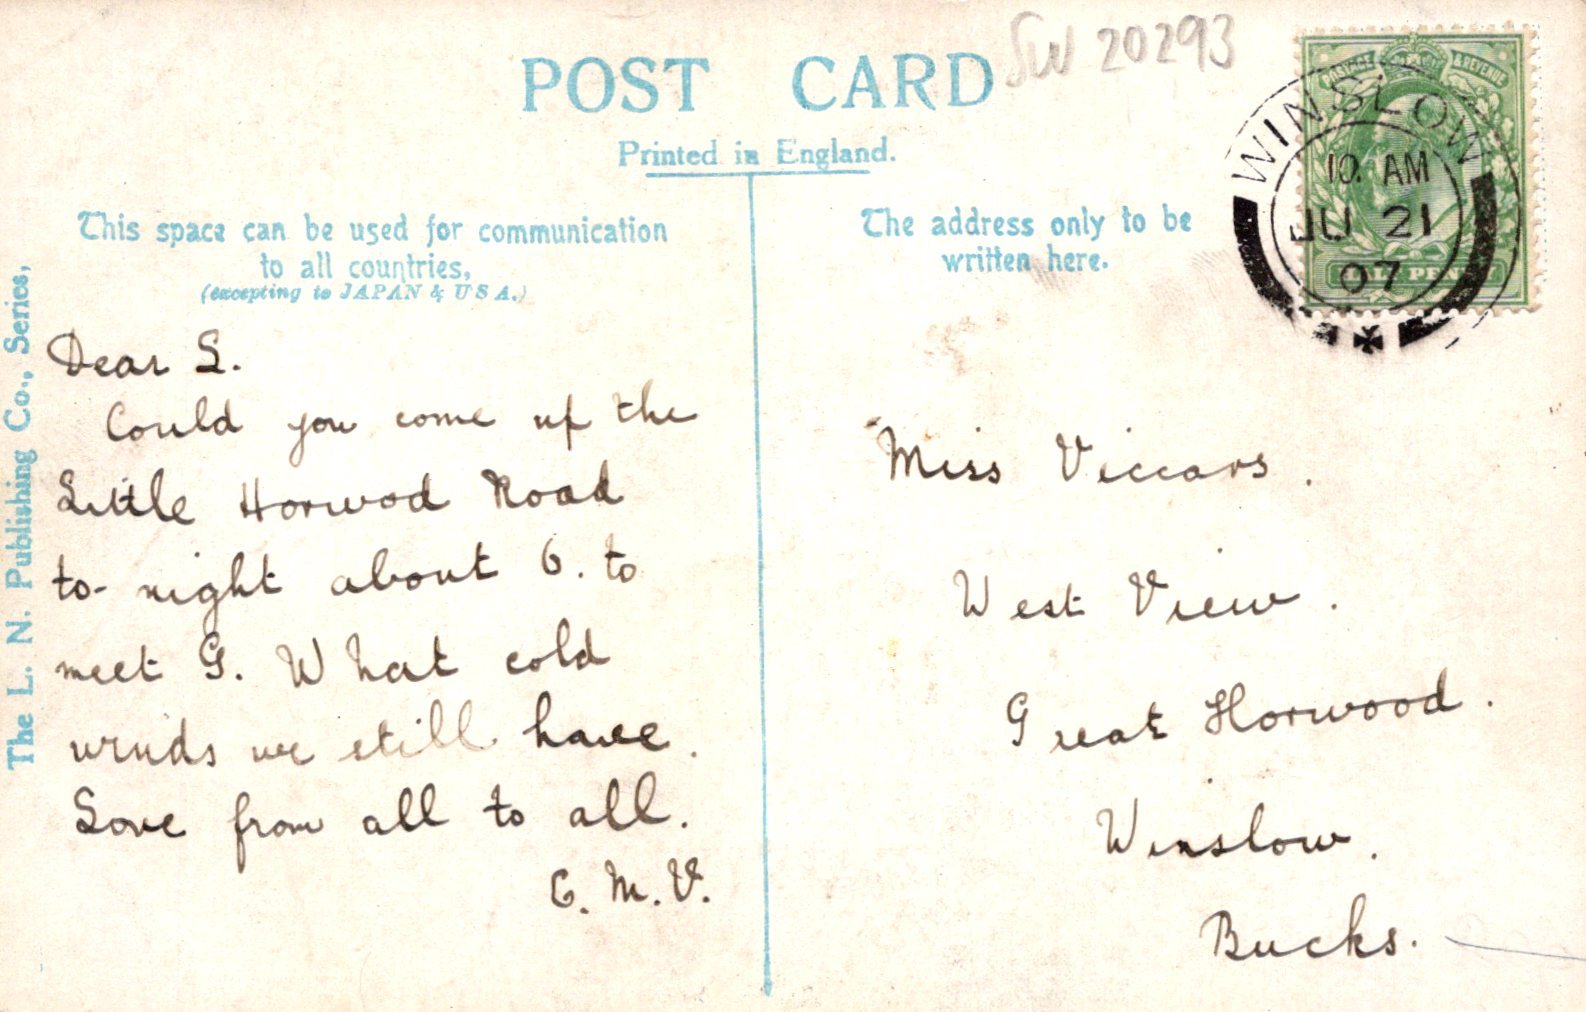 POST CARD
SW 20293
Printed in England.
This space can be used for communication
to all countries,
(excepting to JAPAN & USA.)
The address only to be
written here.
POSTAGE & REVENUE
HALF PENNY
WINSLOW
10. AM
JU 21
07
The L. N. Publishing Co., Series,
Dear L.
Could you come up the
Little Horwod Road
to-night about 6. to
meet G. What cold
winds we still have.
Love from all to all.
C. M. V.
Miss Viccars.
West View.
Great Horwood.
Winslow.
Bucks.